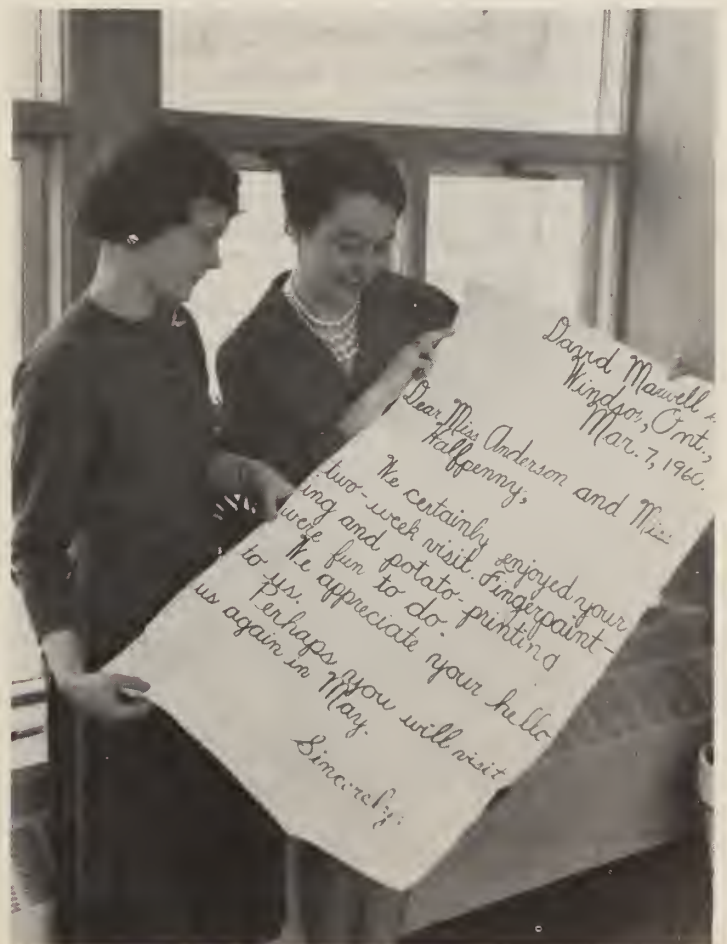 David Maxwell
Windsor, Ont.,
Mar. 7, 1960.
Dear Miss Anderson and Miss
Halfpenny;
We certainly enjoyed your
two-week visit. Fingerpaint-
ing and potato-printing
were fun to do.
We appreciate your hello
to us.
Perhaps you will visit
us again in May.
Sincerely,